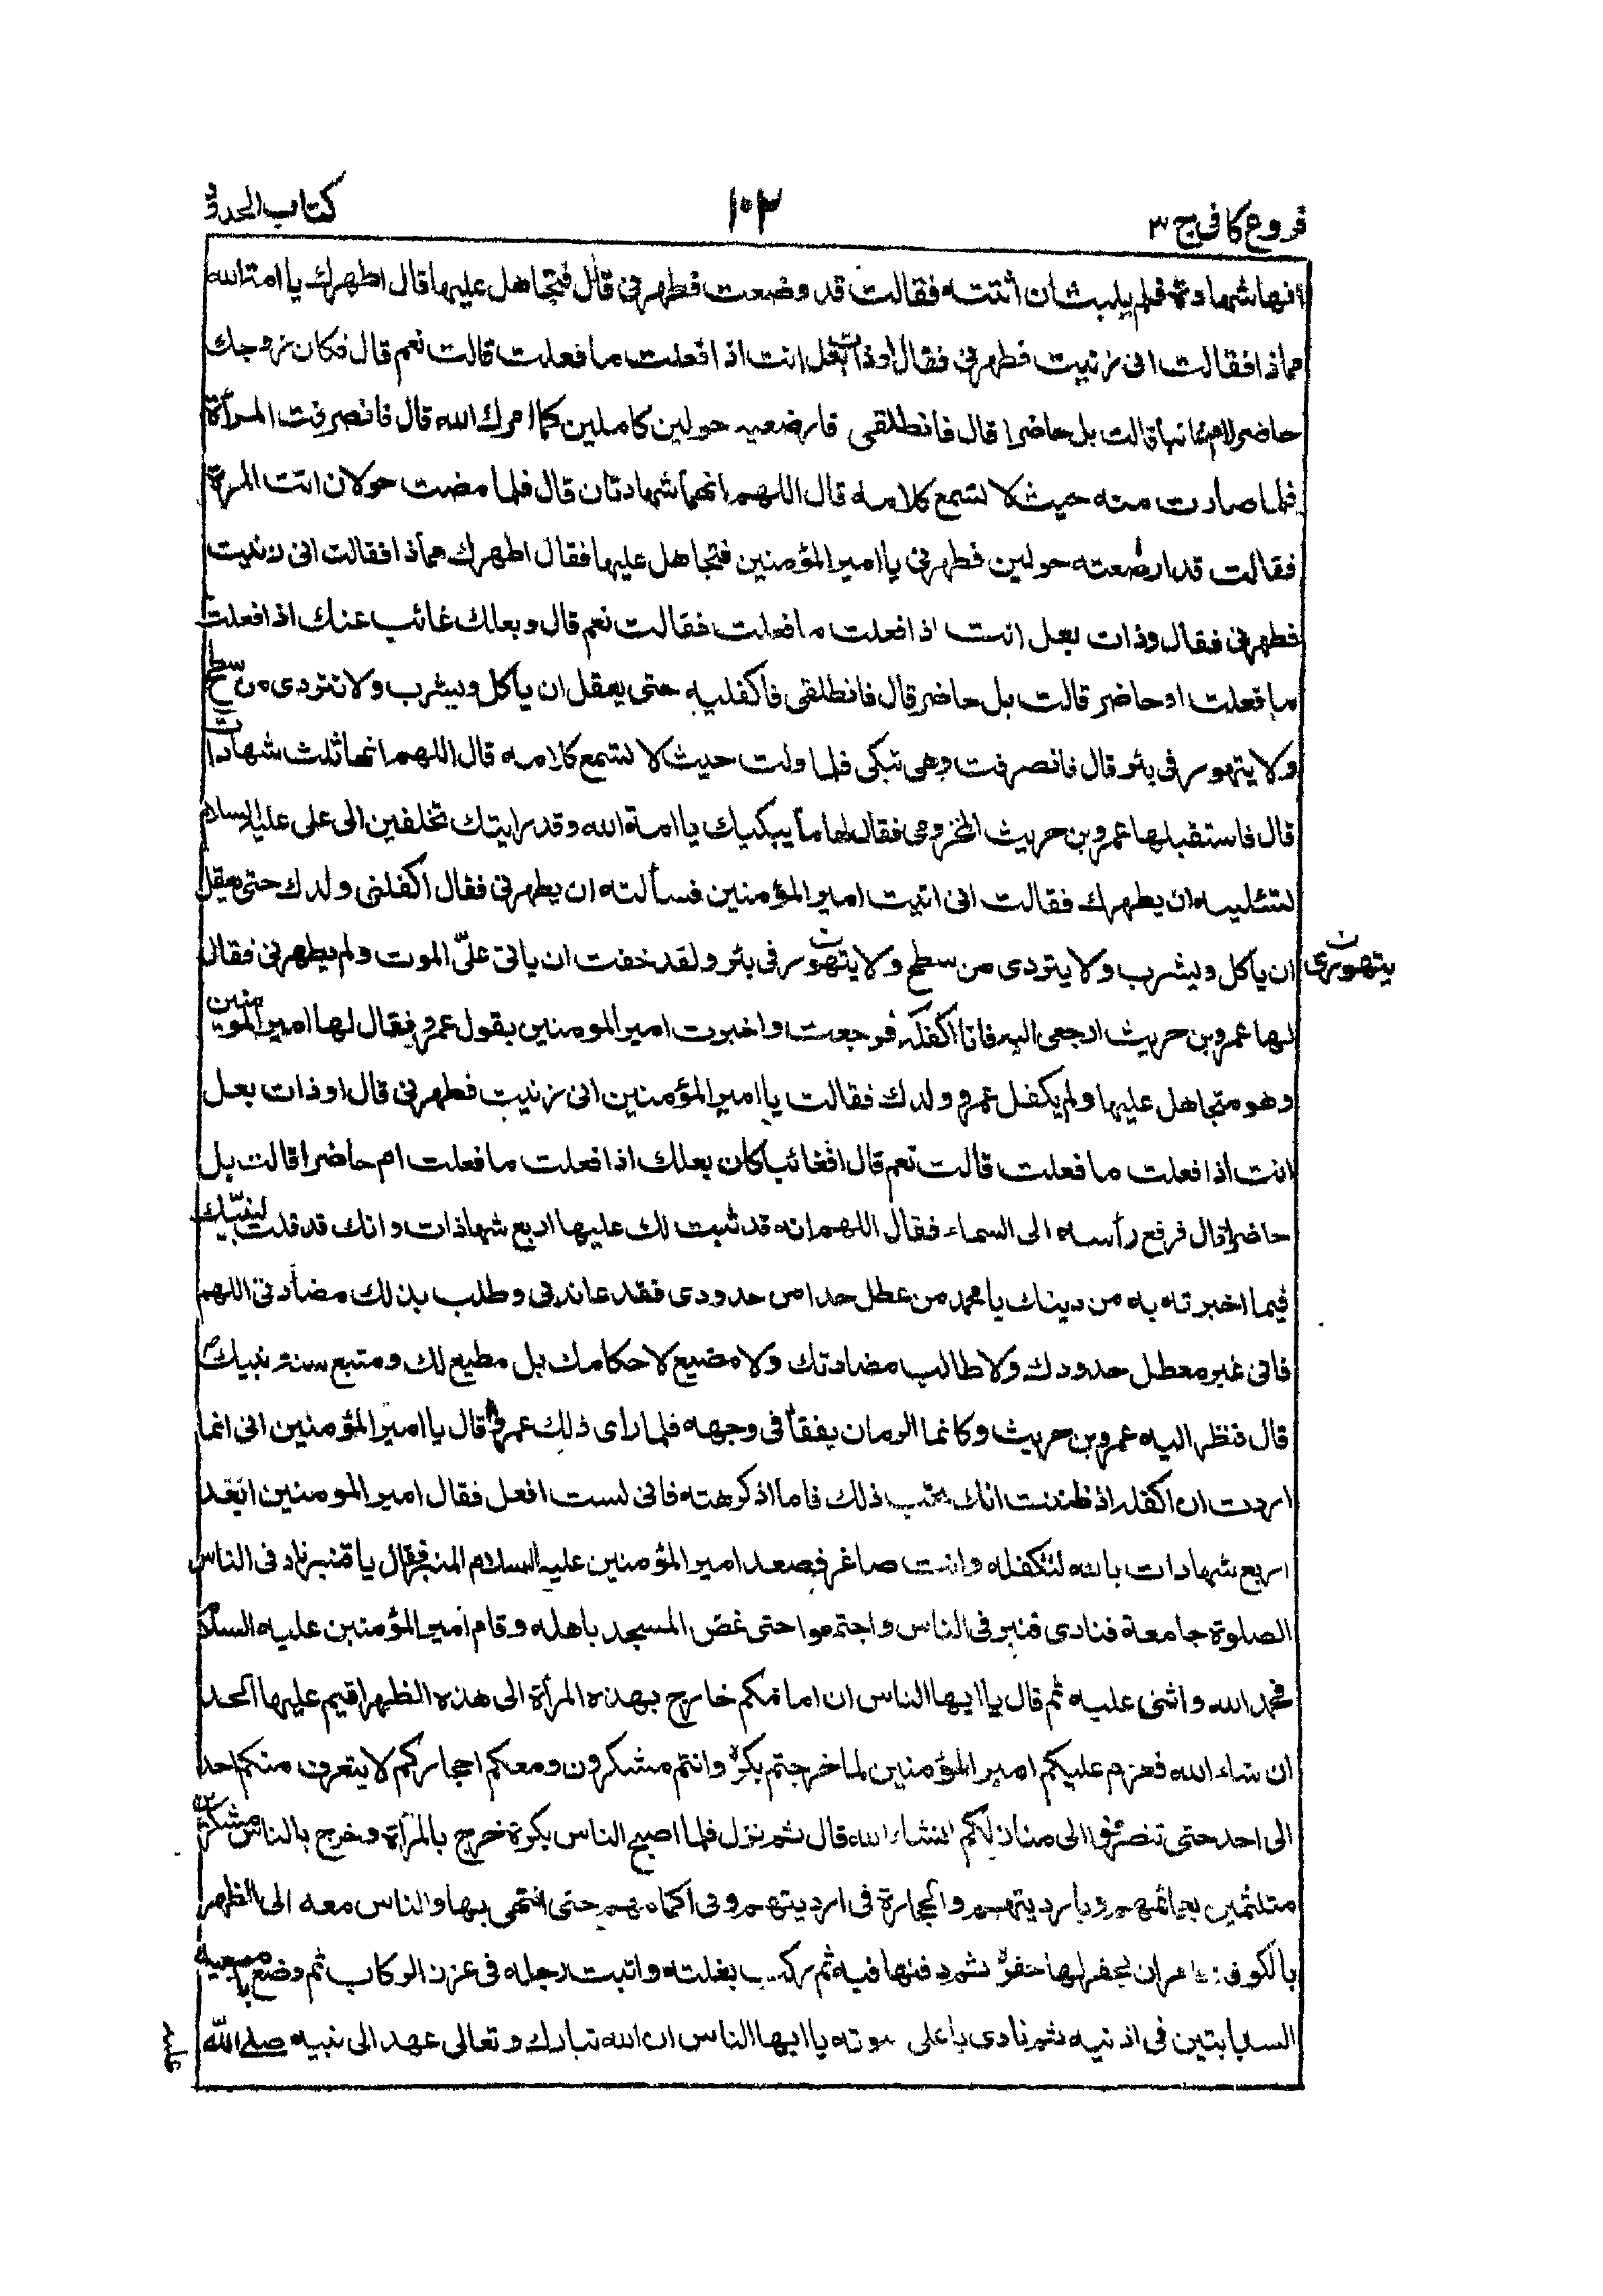 فروع كافى ج ٣
١٠٢
كتاب الحدود
انها شهادة فلم يلبث ان أتته فقالت قد وضعت فطهرنى قال فتجاهل عليها قال اطهرك يا امة الله
مماذا فقالت انى زنيت فطهرنى فقال اوذات بعل انت اذ افعلت ما فعلت قالت نعم قال فكان زوجك
حاضرا ام غائبا قالت بل حاضرا قال فانطلقى فارضعيه حولين كاملين كما امرك الله قال فانصرفت المرأة
فلما صارت منه حيث لا تسمع كلامه قال اللهم انهما شهادتان قال فلما مضت حولان اتت المرة
فقالت قد ارضعته حولين فطهرنى يا امير المؤمنين فتجاهل عليها فقال اطهرك مماذا فقالت انى زنيت
فطهرنى فقال وذات بعل انت اذ افعلت ما فعلت فقالت نعم قال وبعلك غائب عنك اذ افعلت
ما فعلت او حاضر قالت بل حاضر قال فانطلقى فاكفليه حتى يعقل ان ياكل ويشرب ولا تتردى من سطح
ولا يتهور فى بئر قال فانصرفت وهى تبكى فلما ولت حيث لا تسمع كلامه قال اللهم انها ثلث شهادات
قال فاستقبلها عمرو بن حريث المخزومى فقال لها ما يبكيك يا امة الله وقد رايتك تختلفين الى على عليه السلام
تسئليه ان يطهرك فقالت انى اتيت امير المؤمنين فسألته ان يطهرنى فقال اكفلنى ولدك حتى يعقل
ان ياكل ويشرب ولا يتردى من سطح ولا يتهور فى بئر ولقد خفت ان ياتى علىّ الموت ولم يطهرنى فقال
يتهورى ن
لها عمرو بن حريث ارجعى اليه فانا اكفله فرجعت واخبرت امير المومنين بقول عمرو فقال لها امير المومنين
وهو متجاهل عليها ولم يكفل عمرو ولدك فقالت يا امير المؤمنين انى زنيت فطهرنى قال اوذات بعل
انت اذ افعلت ما فعلت قالت نعم قال افغائبا كان بعلك اذ افعلت ما فعلت ام حاضرا قالت بل
حاضرا قال فرفع رأسه الى السماء فقال اللهم انه قد ثبت لك عليها اربع شهادات وانك قد قلت لنبيّك
فيما اخبرته به من دينك يا محمد من عطل حدا من حدودى فقد عاندنى وطلب بذلك مضادتى اللهم
فانى غير معطل حدودك ولا طالب مضادتك ولا مضيع لاحكامك بل مطيع لك ومتبع سنة نبيك ص
قال فنظر اليه عمرو بن حريث وكانما الرمان يفقأ فى وجهه فلما راى ذلك عمرو قال يا امير المؤمنين انى انما
اردت ان اكفله اذ ظننت انك تحب ذلك فاما اذ كرهته فانى لست افعل فقال امير المومنين ابعد
اربع شهادات بالله لتكفله وانت صاغر فصعد امير المؤمنين عليه السلام المنبر فقال يا قنبر ناد فى الناس
الصلوة جامعة فنادى قنبر فى الناس واجتمعوا حتى غص المسجد باهله وقام امير المؤمنين عليه السلام
فحمد الله واثنى عليه ثم قال يا ايها الناس ان امامكم خارج بهذه المرأة الى هذه الظهر اقيم عليها الحد
ان شاء الله فعزم عليكم امير المؤمنين لما خرجتم بكرة وانتم متنكرون ومعكم احجاركم لا يتعرف منكم احد
الى احد حتى تنصرفوا الى منازلكم انشاء الله قال ثم نزل فلما اصبح الناس بكرة خرج بالمرأة وخرج بالناس متنكرين
متلثمين بعمائمهم وباردیتهم والحجارة فى ارديتهم وفى اكمامهم حتى انتهى بها والناس معه الى الظهر
بالكوفة فامر ان يحفر لها حفرة ثم دفنها فيه ثم ركب بغلته واثبت رجله فى غرز الركاب ثم وضع باصبعيه
السبابتين فى اذنيه ثم نادى باعلى صوته يا ايها الناس ان الله تبارك وتعالى عهد الى نبيه صلى الله
عليه